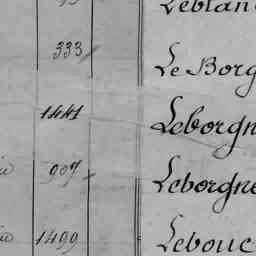 Leblan
333 Le Borg
1441 Leborgn
907 Leborgne
1499 Lebouc